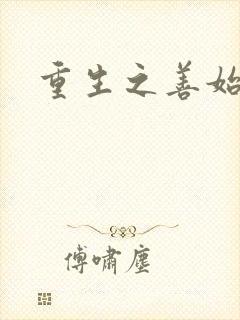 重生之善始
傅啸尘